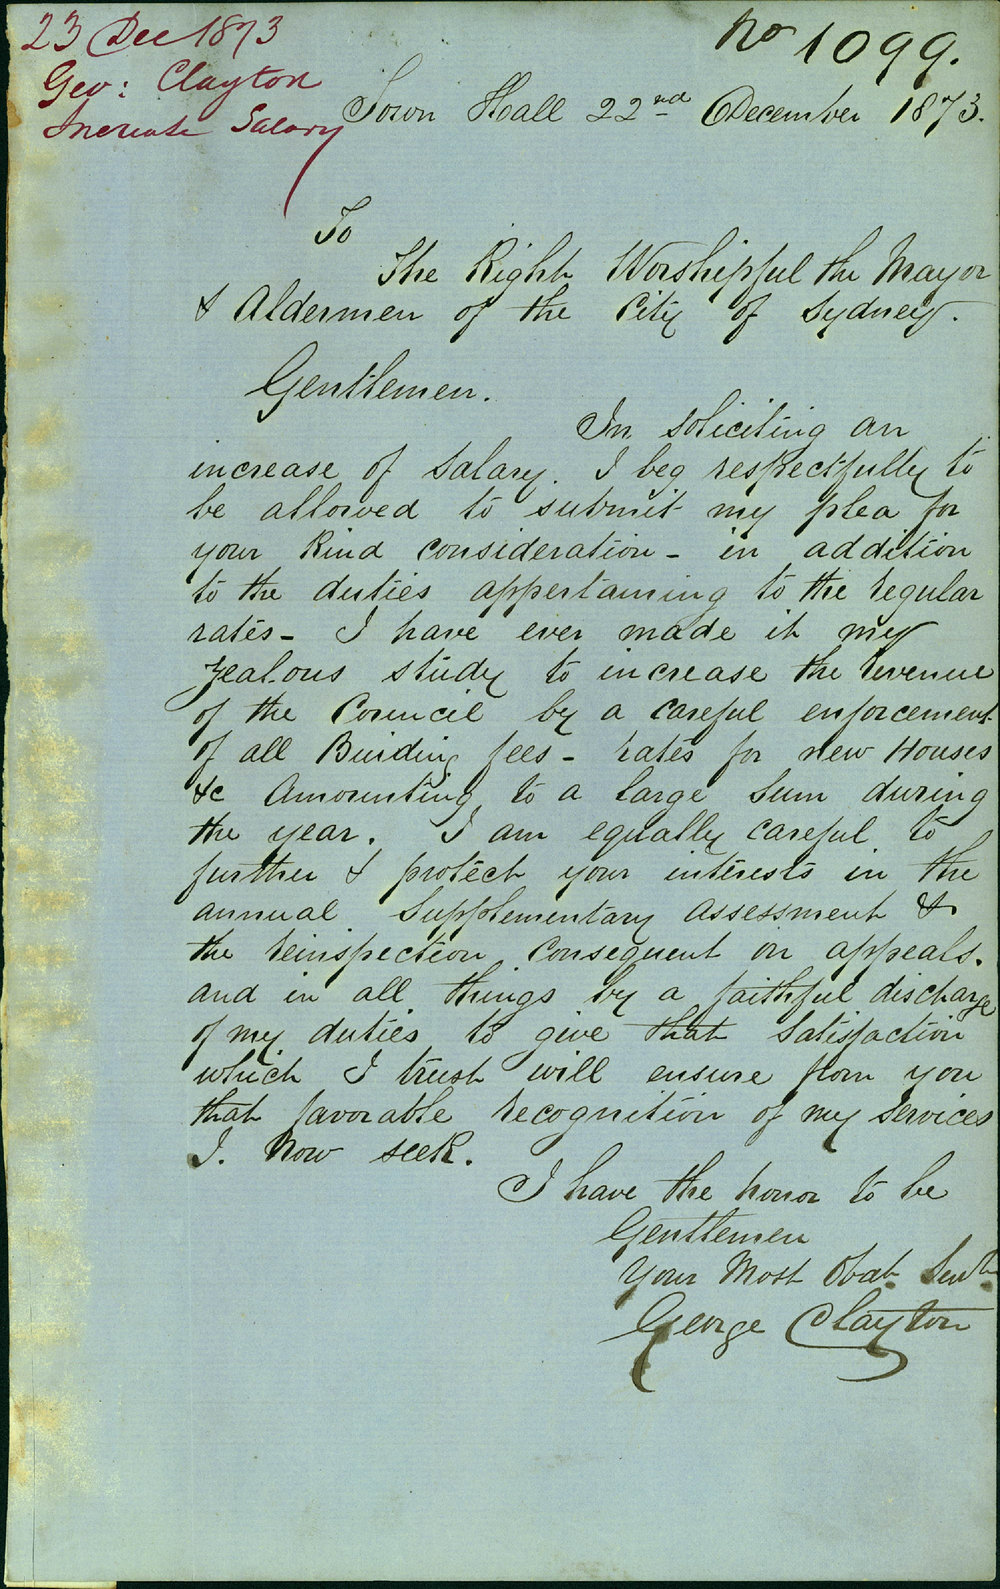 23 Dec 1873
Geo: Clayton
Increase Salary
No 1099.
Town Hall 22nd December 1873.
To
The Right Worshipful the Mayor
& Aldermen of the City of Sydney.
Gentlemen.
In soliciting an
increase of salary. I beg respectfully to
be allowed to submit my plea for
your kind consideration - in addition
to the duties appertaining to the regular
rates - I have ever made it my
zealous study to increase the revenue
of the Council by a careful enforcement
of all Building fees - rates for new Houses
&c Amounting to a large sum during
the year. I am equally careful to
further & protect your interests in the
annual Supplementary Assessment &
the reinspection consequent on appeals.
and in all things by a faithful discharge
of my duties to give that satisfaction
which I trust will ensure from you
that favorable recognition of my services
I. now seek.
I have the honor to be
Gentlemen
Your Most Obdt Servt
George Clayton